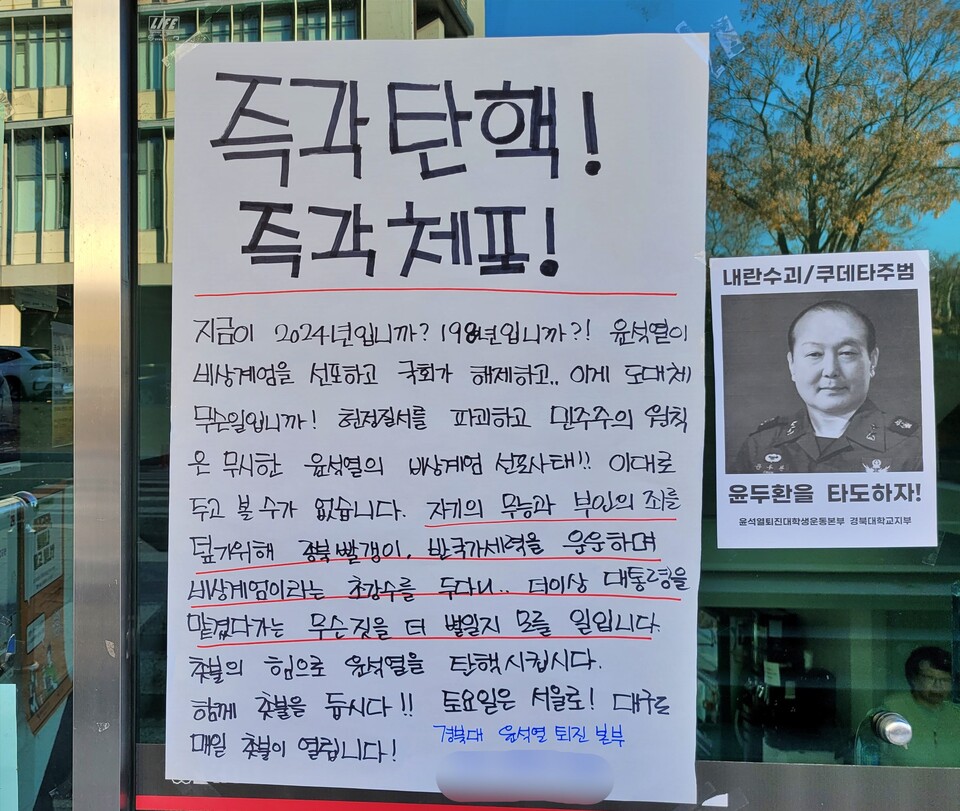 LIFE
즉각 탄핵!
즉각 체포!
지금이 2024년입니까? 198년입니까?! 윤석열이
비상계엄을 선포하고 국회가 해제하고.. 이게 도대체
무슨일입니까! 헌정질서를 파괴하고 민주주의 원칙
은 무시한 윤석열의 비상계엄 선포사태!! 이대로
두고 볼 수가 없습니다. 자기의 무능과 부인의 죄를
덮기위해 종북빨갱이, 반국가세력을 운운하며
비상계엄이라는 초강수를 두다니.. 더이상 대통령을
맡겼다가는 무슨짓을 더 벌일지 모를 일입니다.
촛불의 힘으로 윤석열을 탄핵시킵시다.
함께 촛불을 듭시다!! 토요일은 서울로! 대구도
매일 촛불이 열립니다!
경북대 윤석열 퇴진 본부
내란수괴/쿠데타주범
윤두환을 타도하자!
윤석열퇴진대학생운동본부 경북대학교지부